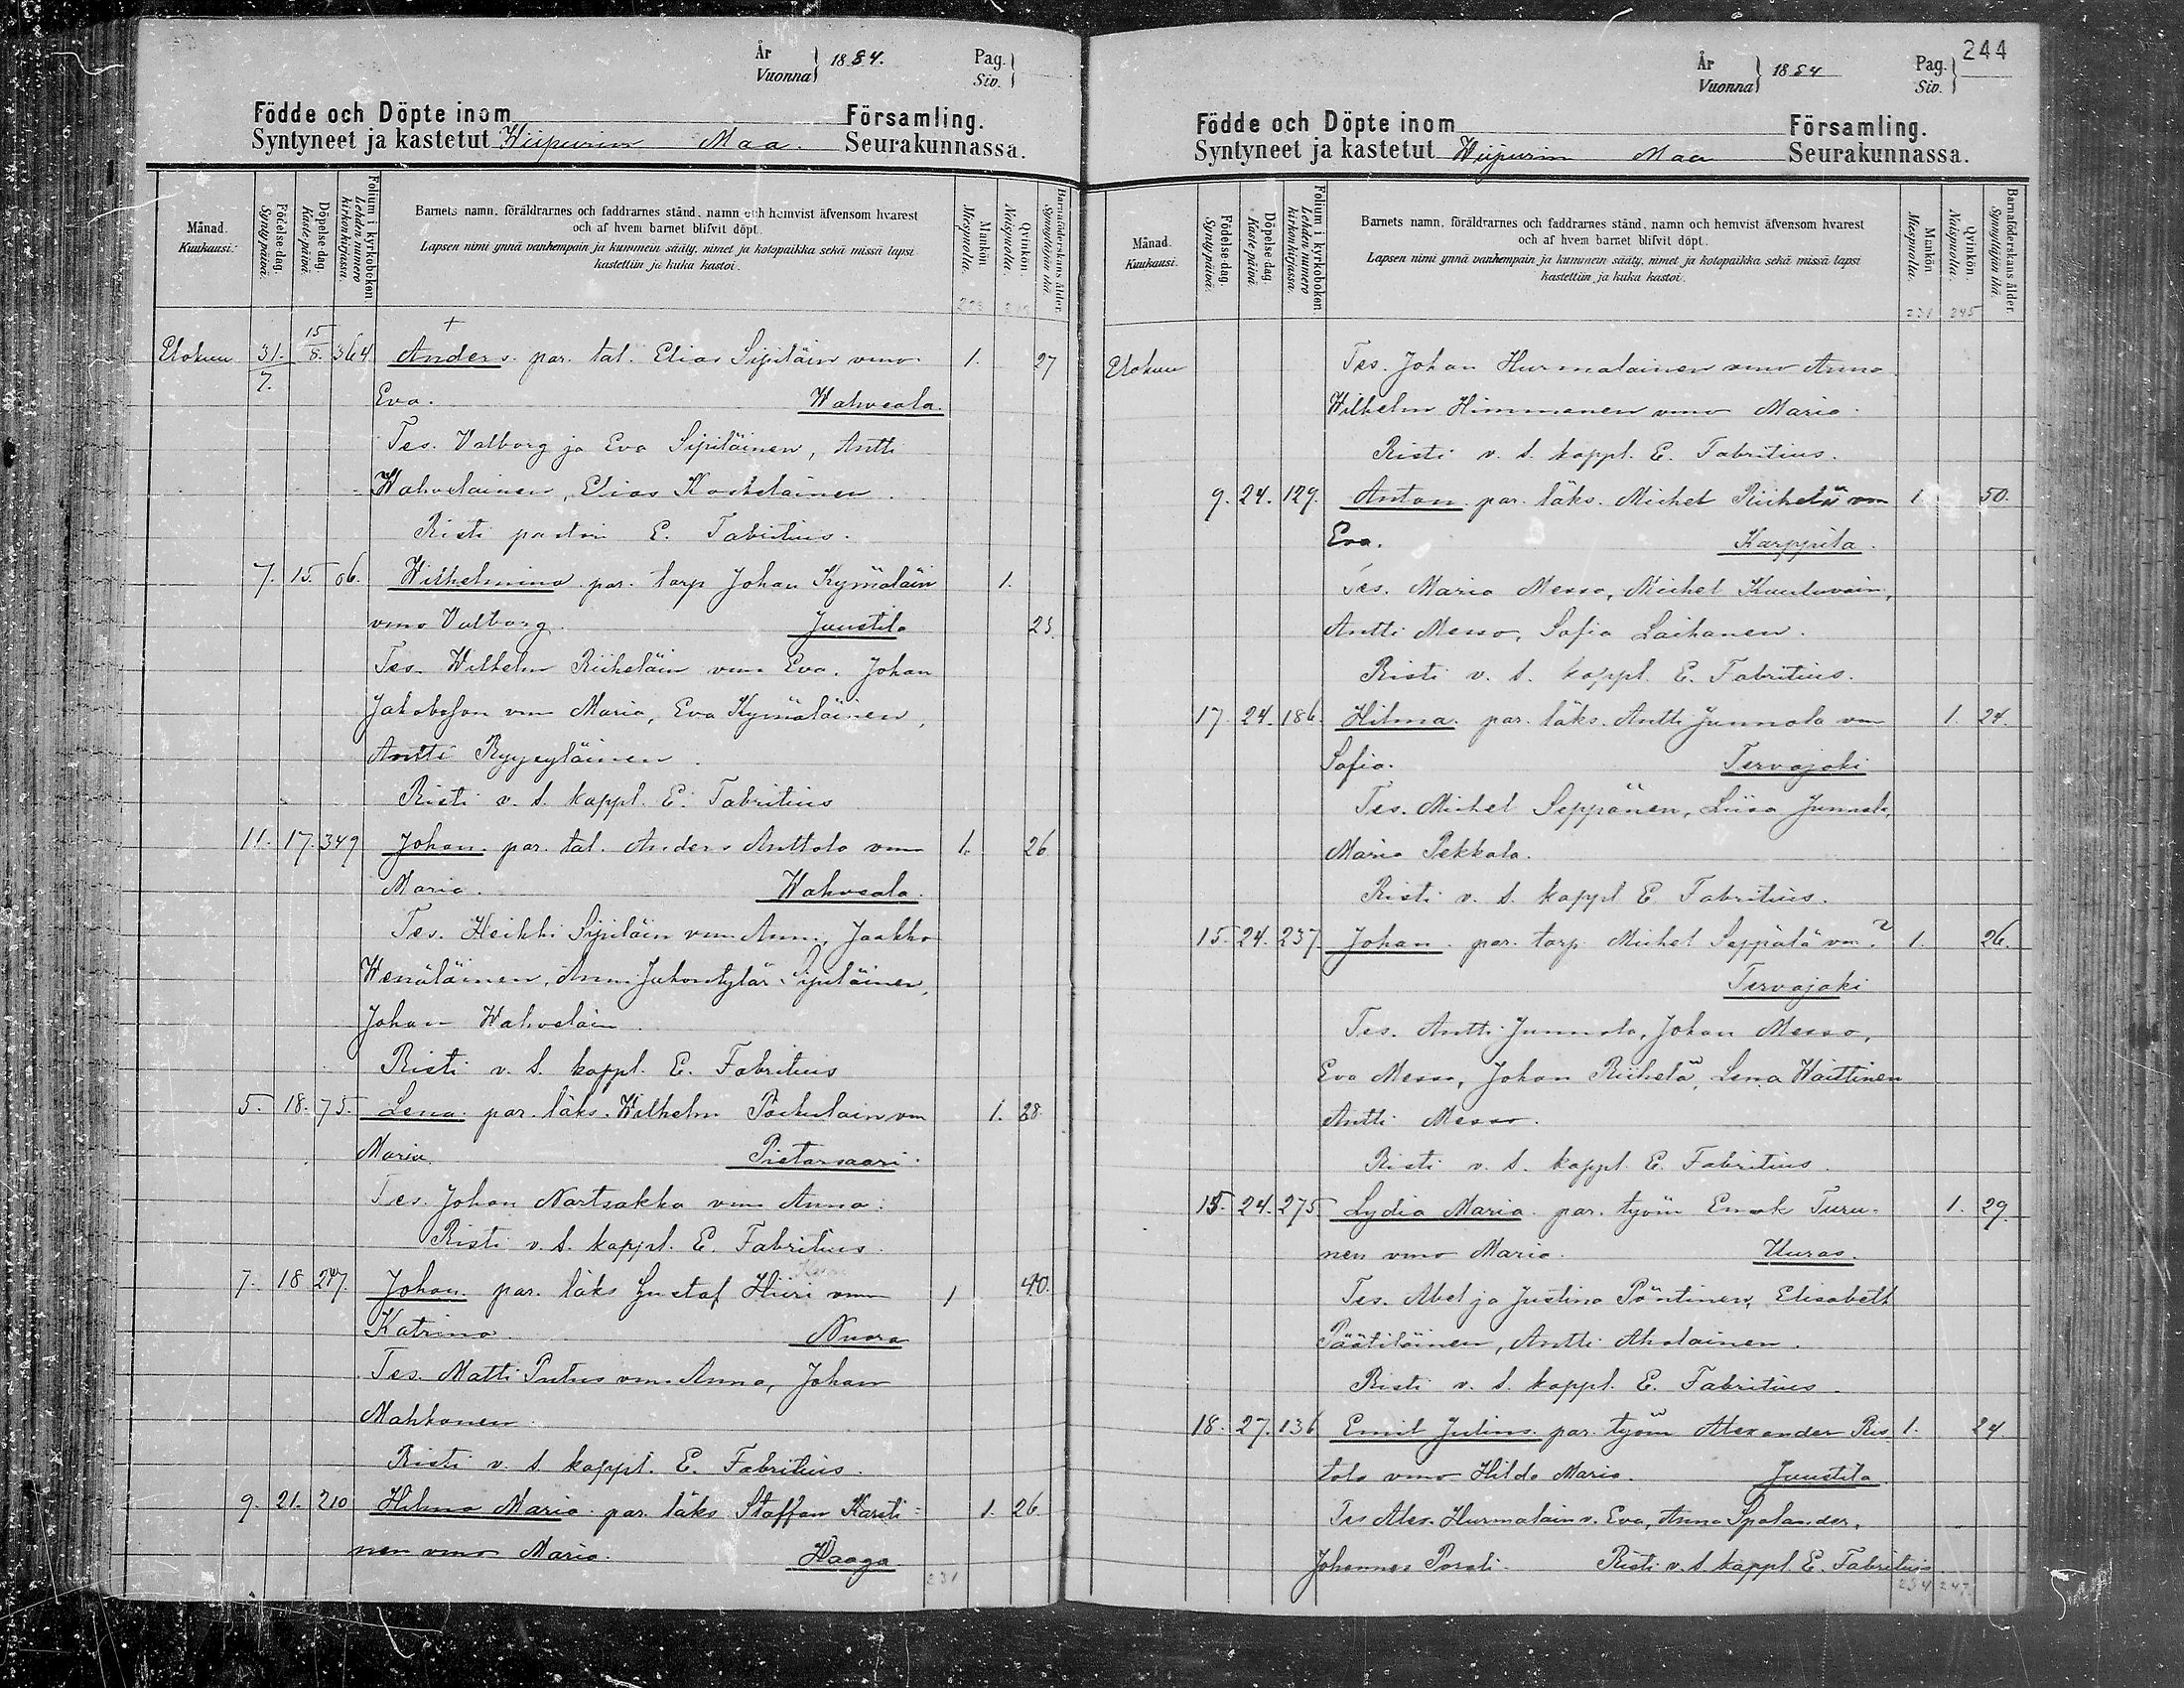 År
Vuonna } 1884.
Pag.
Siv. }
Födde och Döpte inom Församling.
Syntyneet ja kastetut Wiipurin Maa. Seurakunnassa.
Månad.
Kuukausi.
Födelse-dag.
Syntypäivä.
Döpelse-dag.
Kastepäivä.
Folium i kyrkoboken
Lehden numero
kirkonkirjassa.
Barnets namn, föräldrarnes och faddrarnes stånd, namn och hemvist äfvensom hvarest
och af hvem barnet blifvit döpt.
Lapsen nimi ynnä vanhempain ja kummein sääty, nimet ja kotopaikka sekä missä lapsi
kastettiin ja kuka kastoi.
Mankön.
Miespuolta.
Qvinkön.
Naispuolta.
Barnaföderskans ålder.
Synnyttäjän ikä.
Elokuu 31. 15/8. 364 Anders. par. tal. Elias Sipiläin vmo 1. 27
7. Eva. Wahvaala.
Tes. Valborg ja Eva Sipiläinen, Antti
Wahvelainen, Elias Koskelainen.
Risti pastori E. Fabritius.
7. 15. 06. Wilhelmina par. torp Johan Kymäläin 1.
vmo Valborg. Juustila 25.
Tes. Wilhelm Riiheläin vmo Eva. Johan
Jakobsson vmo Maria, Eva Kymäläinen,
Antti Ryypyläinen.
Risti v. s. kappl. E. Fabritius
11. 17. 349 Johan. par. tal. Anders Anttola vmo 1. 26
Maria. Wahvaala.
Tes. Heikki Sipiläin vmo Anna, Jaakko
Wenäläinen, Anna Juhontytär Sipiläinen,
Johan Wahvelain.
Risti v. s. kappl. E. Fabritius
5. 18. 75. Lena. par. läks. Wilhelm vm 1. 28
Maria. Pietarsaari.
Tes. Johan Nartsakka vmo Anna.
Risti v. s. kappl. E. Fabritius.
7. 18 247. Johan. par. läks Gustaf Hiiri vmo 1 40.
Katrina. Nuora
Tes. Matti Putus vmo Anna, Johan
Mahkonen.
Risti v. s. kappl. E. Fabritius.
9. 21. 210 Hilma Maria par. läks Staffan Karsti- 1. 26.
nen vmo Maria. Haaga
231
244
År
Vuonna } 1884
Pag.
Siv. }
Födde och Döpte inom Församling.
Syntyneet ja kastetut Wiipurin Maa Seurakunnassa.
Månad.
Kuukausi.
Födelse-dag.
Syntypäivä.
Döpelse-dag.
Kastepäivä.
Folium i kyrkoboken
Lehden numero
kirkonkirjassa.
Barnets namn, föräldrarnes och faddrarnes stånd, namn och hemvist äfvensom hvarest
och af hvem barnet blifvit döpt.
Lapsen nimi ynnä vanhempain ja kummein sääty, nimet ja kotopaikka sekä missä lapsi
kastettiin ja kuka kastoi.
Mankön.
Miespuolta.
Qvinkön.
Naispuolta.
Barnaföderskans ålder.
Synnyttäjän ikä.
231 245
Elokuu Tes. Johan Hurmalainen vmo Anna
Wilhelm Himmanen vmo Maria.
Risti v. s. kappl. E. Fabritius.
9. 24. 129. Anton. par. läks. Michel Riihelä vm 1. 50.
Eva. Karppila.
Tes. Maria Messo, Michel Kuuluvain,
Antti Messo, Sofia Laihanen.
Risti v. s. kappl. E. Fabritius.
17. 24. 186. Hilma. par. läks. Antti Junnola vm 1. 24.
Sofia. Tervajoki
Tes. Michel Seppänen, Liisa Junnola,
Maria Pekkala.
Risti v. s. kappl E. Fabritius.
15. 24. 237. Johan. par. torp. Michel Seppälä vm ? 1. 26.
Tervajoki
Tes. Antti Junnola, Johan Messo,
Eva Messo, Johan Riihelä, Lena Waittinen
Antti Messo.
Risti v. s. kappl. E. Fabritius.
15. 24. 275 Lydia Maria. par. työm Enok Turu- 1. 29.
nen vmo Maria. Uuras.
Tes. Abel ja Justina Pöntinen, Elisabeth
Päätiläinen, Antti Aholainen.
Risti v. s. kappl. E. Fabritius.
18. 27. 136 Emil Julius. par. työm Alexander Ris 1. 24.
tola vmo Hilda Maria. Juustila.
Tes Alex. Hurmalain v. Eva, Anna Spolander,
Johannes Porali. Risti v. s. kappl. E. Fabritius.
234 247.